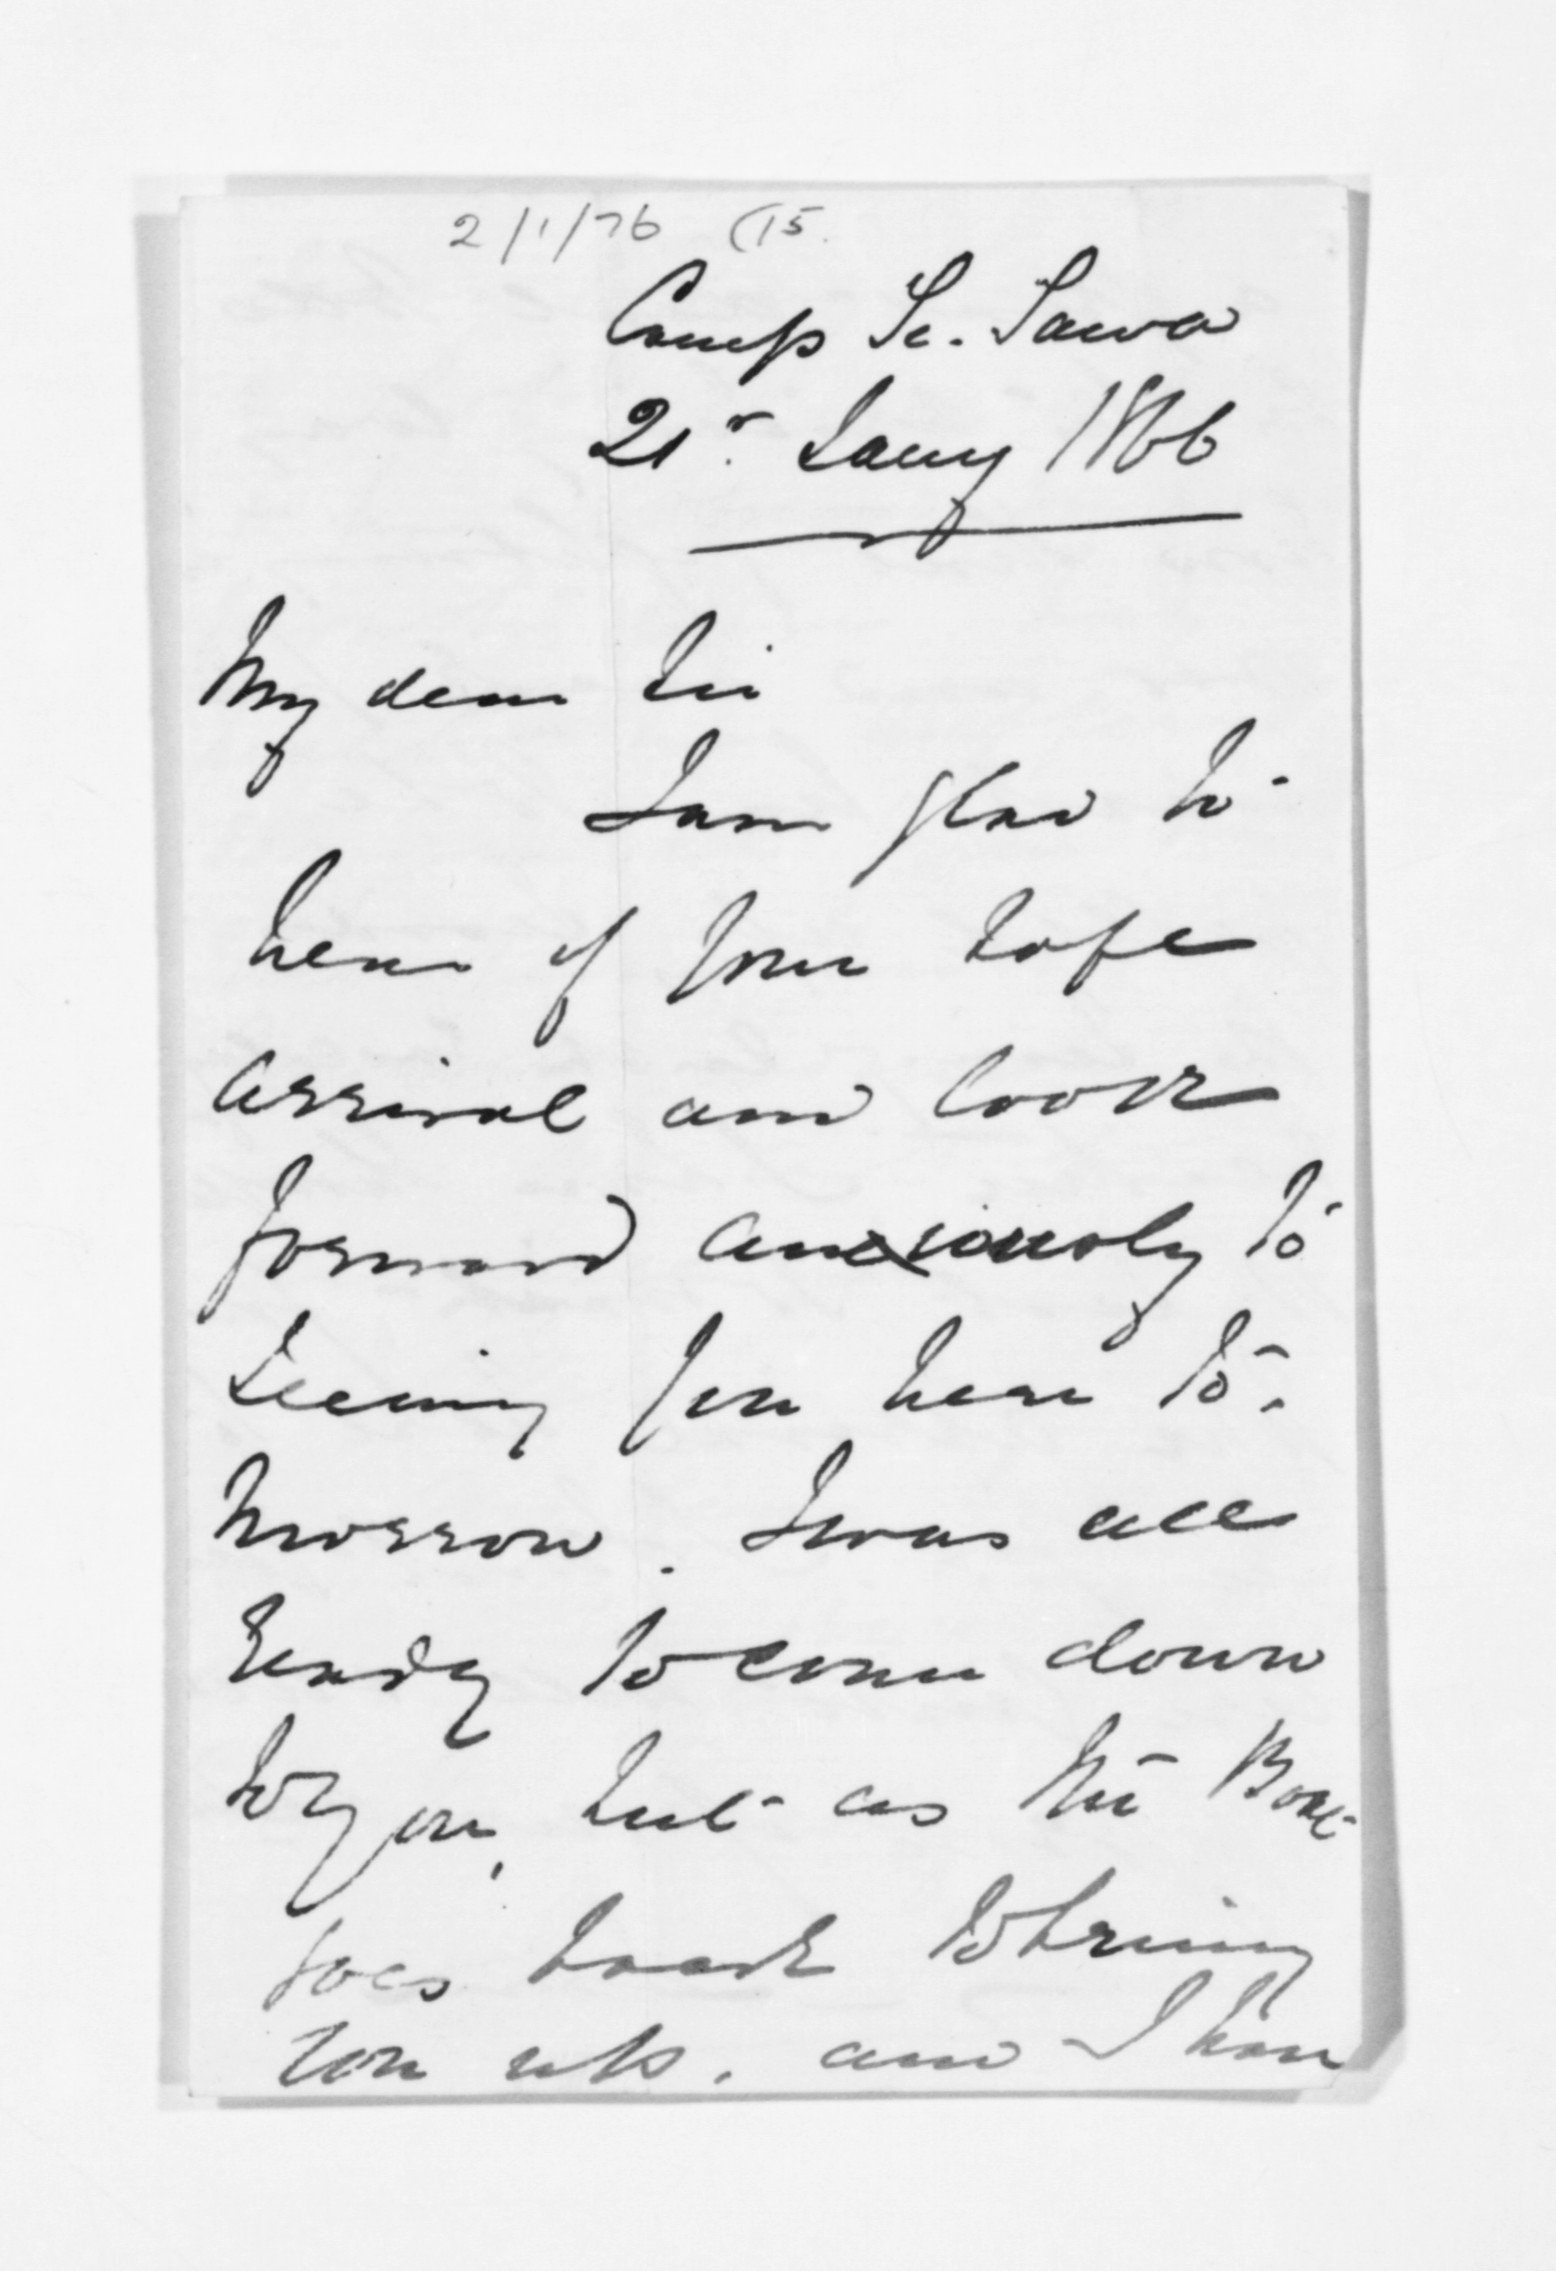 2/1/76 (15.
Camp Te. Tawa
21st. Jany 1866
My dear Sir
I am glad to
hear of your safe
arrival and look
forward anxiously to
seeing you here to-
morrow. I was all
ready to come down
to you, but as the Boat
goes back to bring
you up. and I have